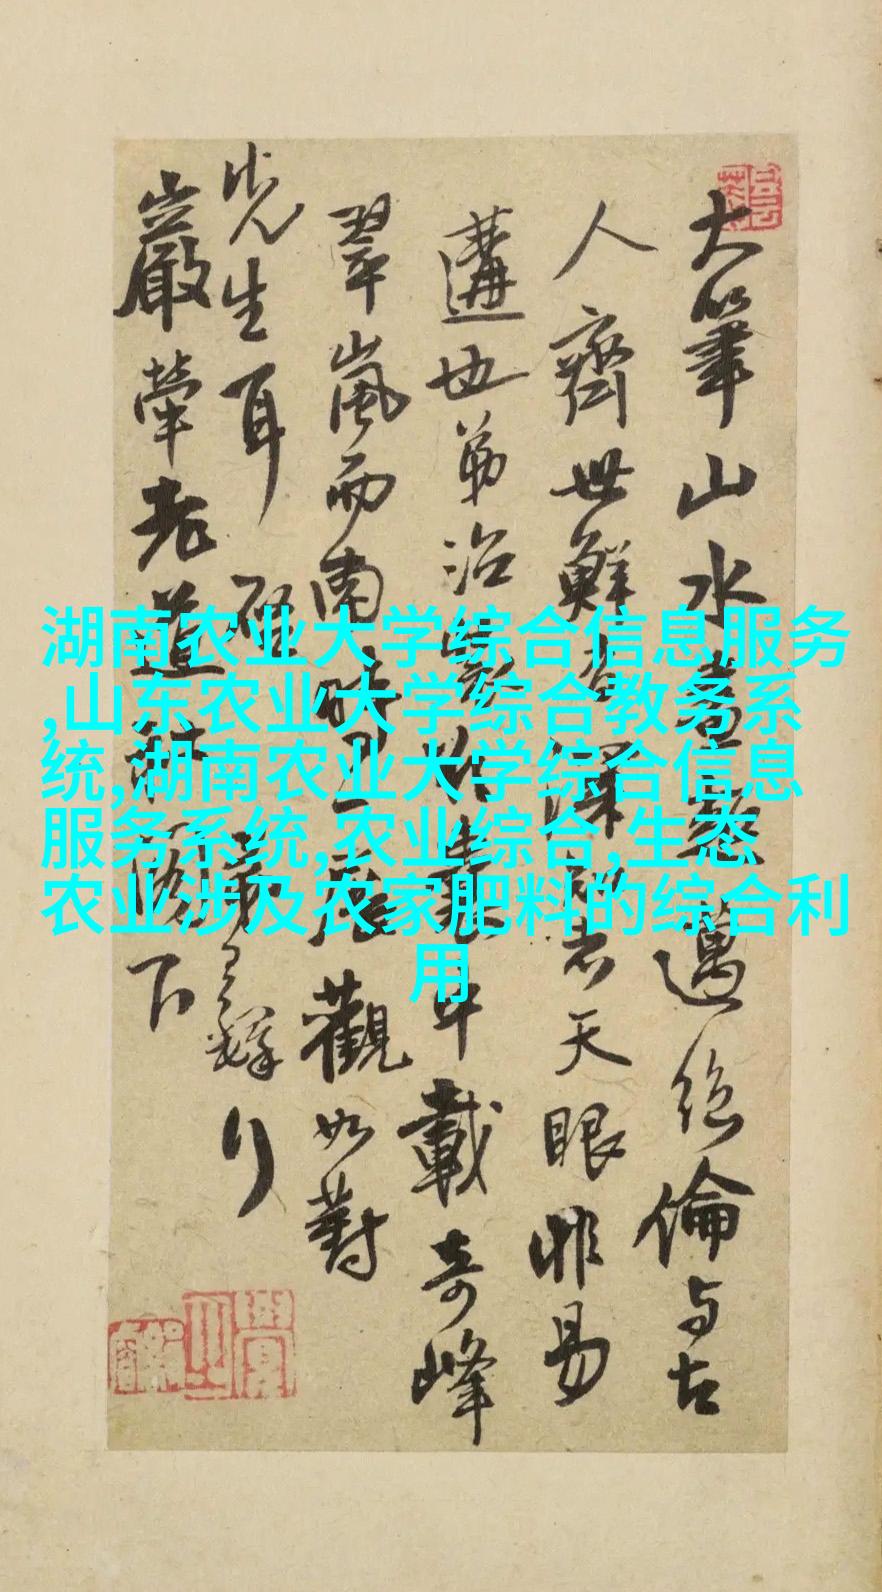 大筆山水邁絕倫与古
人齊世鮮深天眼非易
遘也弟治載奇峰
翠嵐而南時展觀如對
先生耳弟
巖犖老道閣下
湖南农业大学综合信息服务
,山东农业大学综合教务系
统,湖南农业大学综合信息
服务系统,农业综合,生态
农业涉及农家肥料的综合利
用